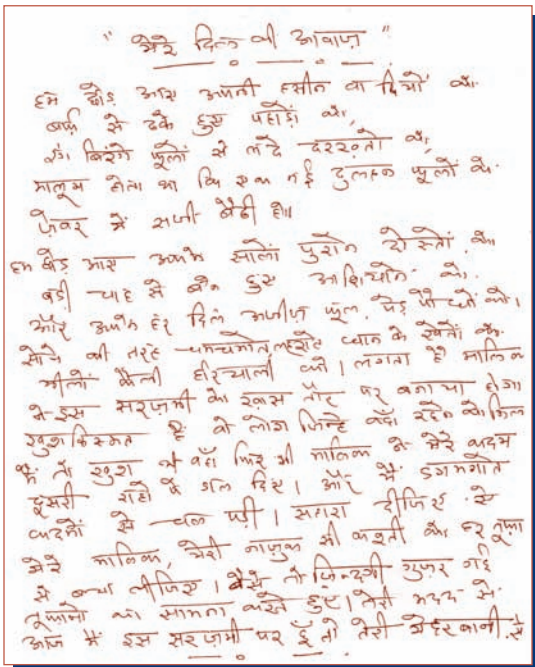 " मेरे दिल की आवाज़ "
हम छोड़ आए अपनी हसीन वादियों को
बर्फ से ढके हुए पहाड़ों को,
रंग बिरंगे फूलों से लदे दरख़्तों को,
मालूम होता था कि एक नई दुल्हन फूलों के
ज़ेवर में सजी बैठी हो।
हम छोड़ आए अपने सालों पुराने दोस्तों को
बड़ी चाह से बने हुए आशियाने को
और अपने हर दिल अजीज़ फूल, पेड़ पौधों को।
सोने की तरह चमचमाते लहराते धान के खेतों को
मीलों फैली हरियाली को। लगता है मालिक
ने इस सरज़मीं को ख़ास तौर पर बनाया होगा
खुशकिस्मत हैं वो लोग जिन्हें वहाँ रहने को मिला
मैं तो खुश थी वहाँ फिर भी मालिक ने मेरे कदम
दूसरी राहों में डाल दिए। और मैं डगमगाते
कदमों से चल पड़ी। सहारा दीजिए ऐ
मेरे मालिक, मेरी नाज़ुक सी कश्ती को हर तूफ़ां
से बचा लीजिए। वैसे तो ज़िन्दगी गुज़र गई
तूफ़ानों का सामना करते हुए। तेरी मदद से
आज मैं इस सरज़मीं पर हूँ तो तेरी मेहरबानी से